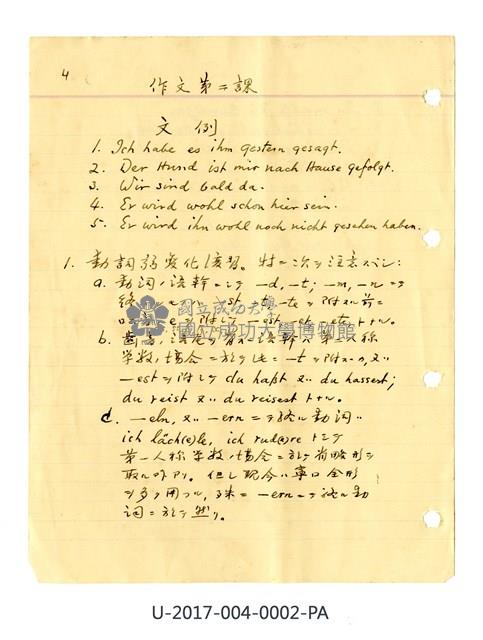 4
作文第二課
文例
1. Ich habe es ihm gestern gesagt.
2. Der Hund ist mir nach Hause gefolgt.
3. Wir sind bald da.
4. Er wird wohl schon hier sein.
5. Er wird ihn wohl noch nicht gesehen haben.
1. 動詞弱変化復習。特ニ次ヲ注意スベシ:
a. 動詞ノ語幹ニシテ -d, -t; -m, -n ヲ
-st, -t, -te ヲ附スル前ニ
e ヲ附シテ -est, -et, -ete トナル。
b.
単数ノ場合ニ於テモ -t ヲ附スカ, 又ハ
-est ヲ附シテ du haßt 又ハ du hassest;
du reist 又ハ du reisest トナル。
c. -eln, 又ハ -ern ニ終ル動詞ハ
ich läch(e)le, ich rud(e)re トシテ
第一人称単数ノ場合ニ於テ省略形ヲ
取ルコトアリ。但シ現今ハ寧ロ全形
ヲ多ク用フル, 殊ニ -ern ニ終ル動
詞ニ於テ然リ。
國立成功大學
國立成功大學博物館
U-2017-004-0002-PA